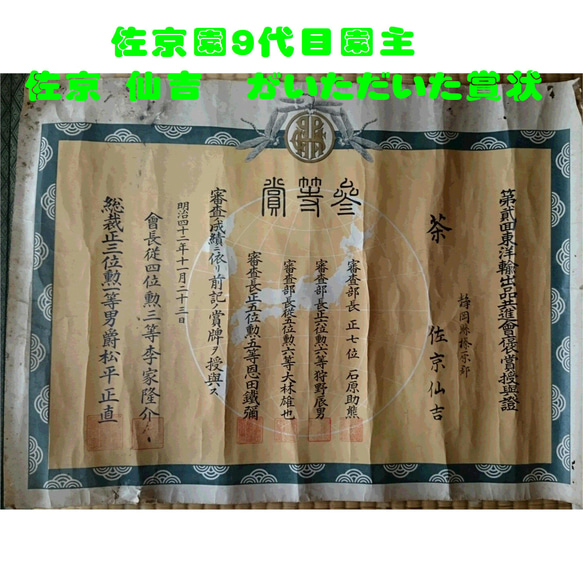 佐京園9代目園主
佐京 仙吉 がいただいた賞状
第貳回東洋輸出品共進會褒賞授與證
茶
佐京仙吉
參等賞
審査部長 正七位 石原助熊
審査部長正六位勲六等狩野辰男
審査部長從五位勲六等大林雄也
審査長正五位勲五等恩田鐵彌
審査成績ニ依リ前記ノ賞牌ヲ授與ス
明治四十二年十一月二十三日
會長從四位勲三等李家隆介
総裁正三位勲一等男爵松平正直